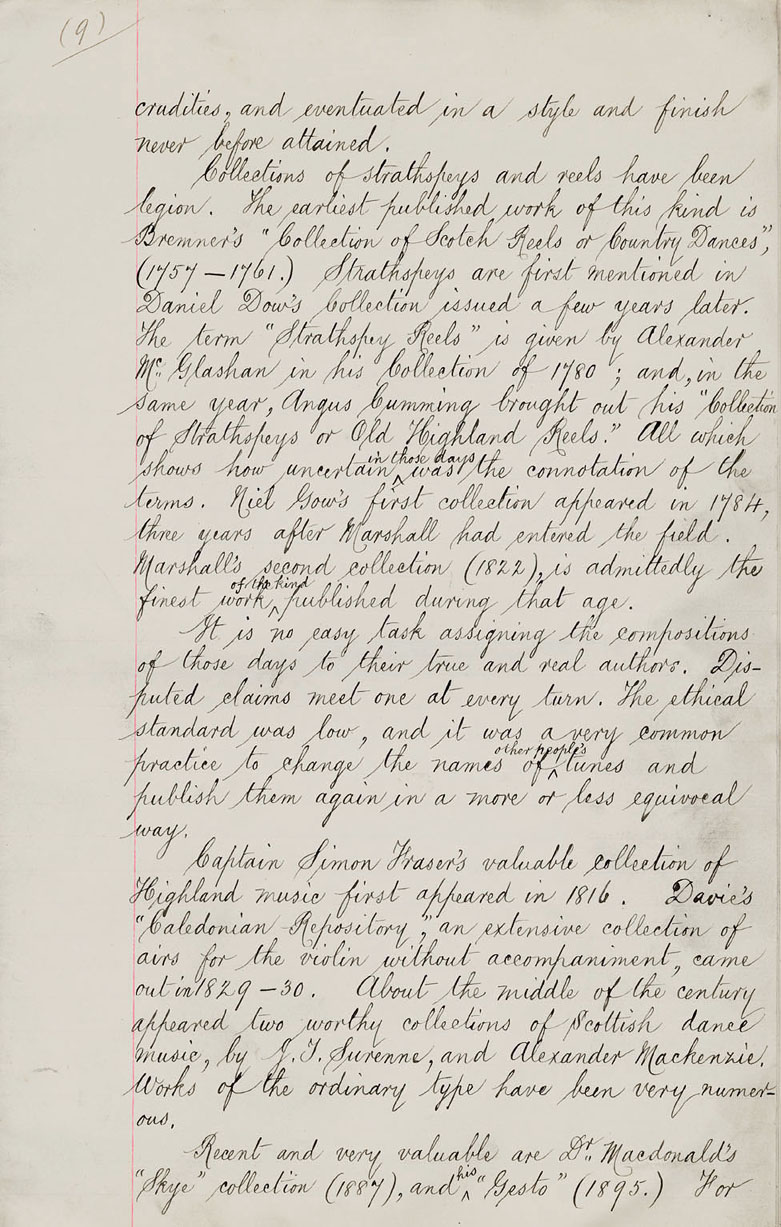 (9)
crudities, and eventuated in a style and finish
never before attained.
Collections of strathspeys and reels have been
legion. The earliest published work of this kind is
Bremner's "Collection of Scotch Reels or Country Dances",
(1757 — 1761.) Strathspeys are first mentioned in
Daniel Dow's Collection issued a few years later.
The term "Strathspey Reels" is given by Alexander
Mc. Glashan in his Collection of 1780 ; and, in the
same year, Angus Cumming brought out his "Collection
of Strathspeys or Old Highland Reels." All which
shows how uncertain in those days was the connotation of the
terms. Niel Gow's first collection appeared in 1784,
three years after Marshall had entered the field.
Marshall's second collection (1822), is admittedly the
finest work of the kind published during that age.
It is no easy task assigning the compositions
of those days to their true and real authors. Dis-
puted claims meet one at every turn. The ethical
standard was low, and it was a very common
practice to change the names of other people's tunes and
publish them again in a more or less equivocal
way.
Captain Simon Fraser's valuable collection of
Highland music first appeared in 1816. Davie's
"Caledonian Repository," an extensive collection of
airs for the violin without accompaniment, came
out in 1829 – 30. About the middle of the century
appeared two worthy collections of Scottish dance
music, by J. T. Surenne, and Alexander Mackenzie.
Works of the ordinary type have been very numer-
ous.
Recent and very valuable are Dr. Macdonald's
"Skye" collection (1887), and his "Gesto" (1895.) For